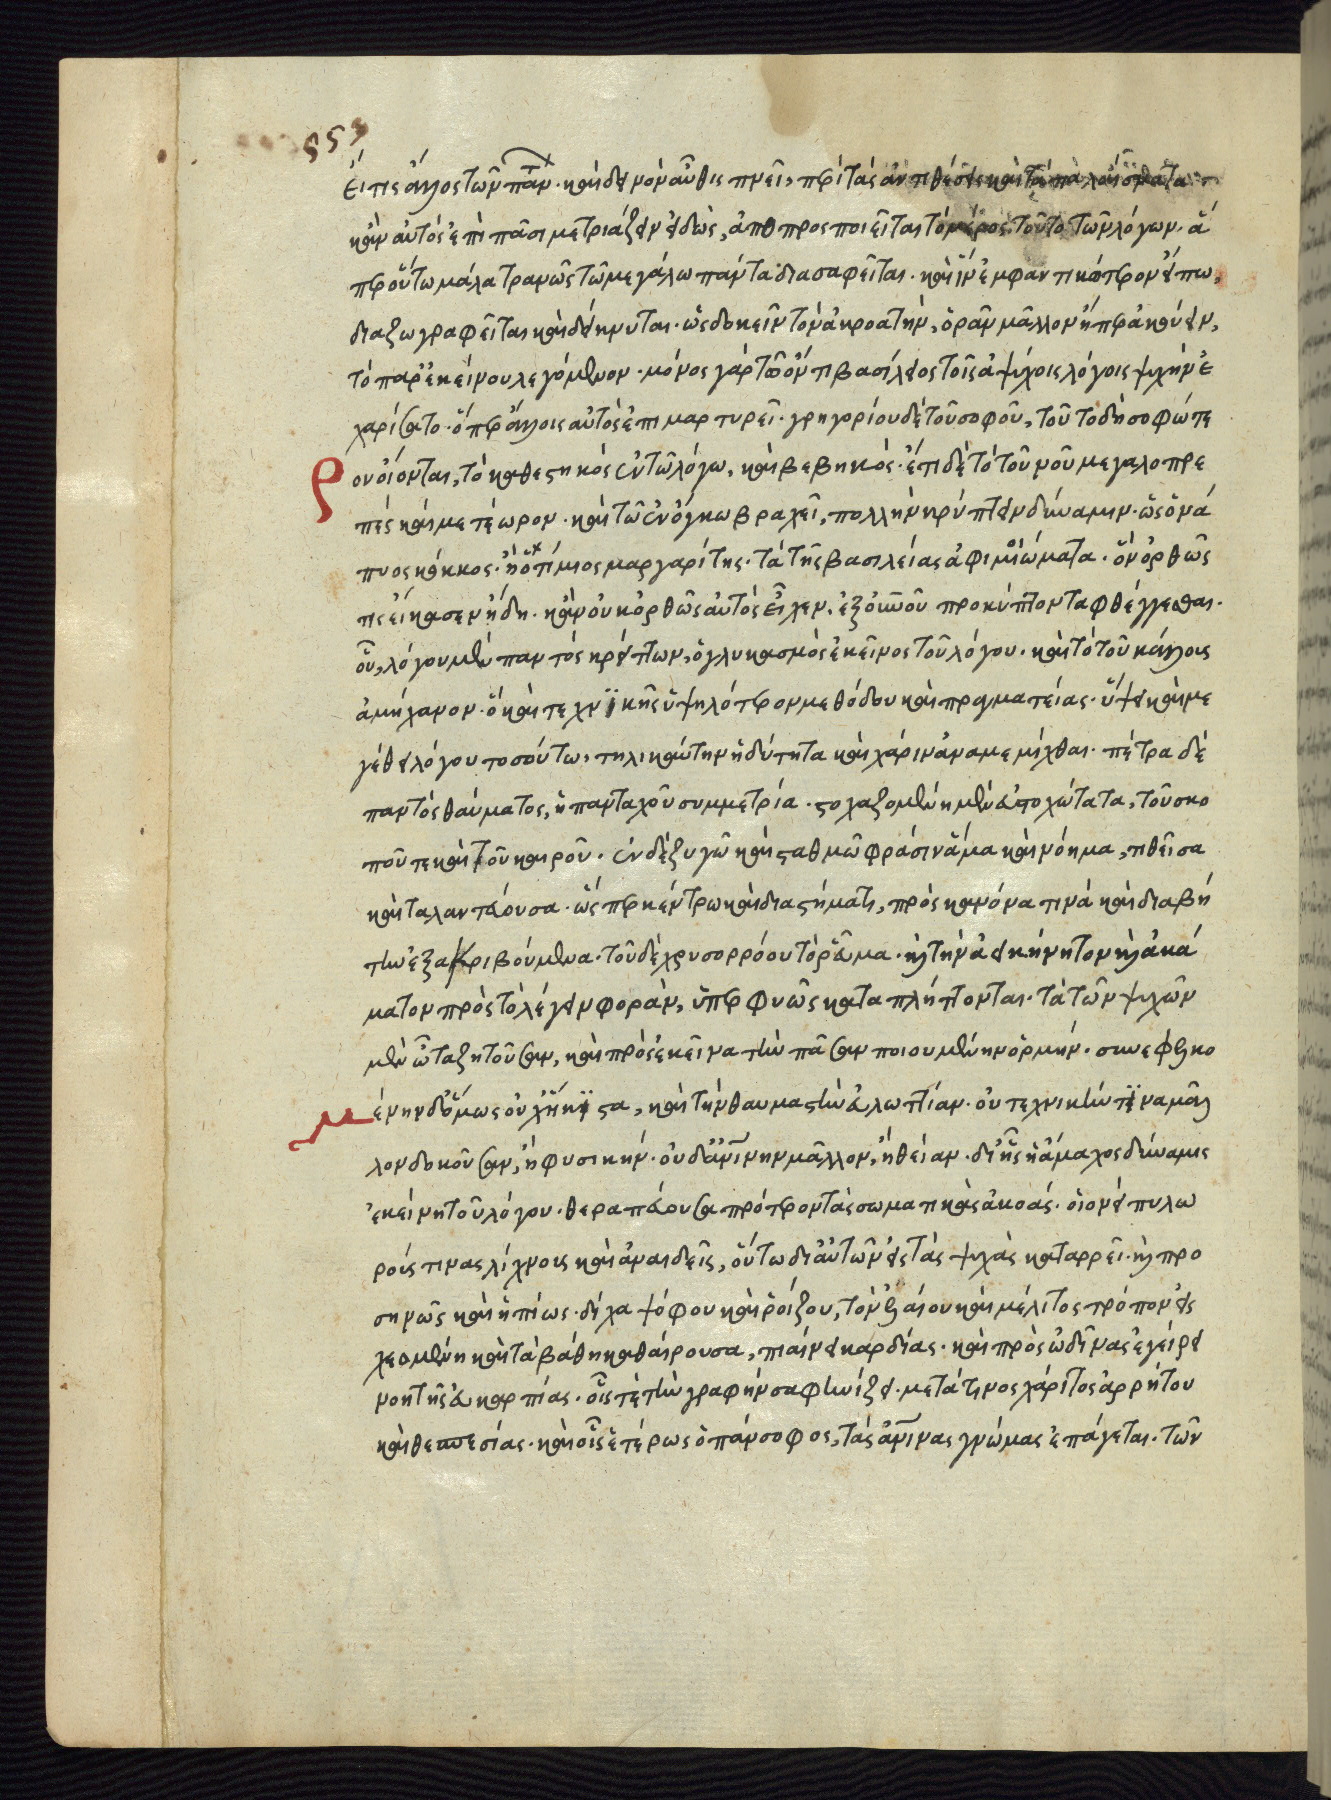 εἴ τις ἄλλος τῶν πάντων. καὶ δεινὸν αὖθις πνεῖ, περὶ τὰς ἀντιθέσεις καὶ τὰ παλαίσματα
κἂν αὐτὸς ἐπὶ πᾶσι μετριάζειν εἰδὼς, ἀποπροσποιεῖται τὸ μέρος τοῦτο τῶν λόγων. ἅ
περ οὕτω μάλα τρανῶς τῶ μεγάλω πάντα διασαφεῖται. καὶ ἵν' ἐμφαντικώτερον εἴπω,
διαζωγραφεῖται καὶ δείκνυται. ὡς δοκεῖν τὸν ἀκροατὴν, ὁρᾶν μᾶλλον ἤπερ ἀκούειν,
τὸ παρ' ἐκείνου λεγόμενον. μόνος γὰρ τῶ ὄντι βασίλειος τοῖς ἀψύχοις λόγοις ψυχὴν ἐ
χαρίσατο. ὅπερ ἄλλοις αὐτὸς ἐπιμαρτυρεῖ. γρηγορίου δὲ τοῦ σοφοῦ, τοῦτο δὴ σοφώτε
ρον οἴονται, τὸ καθεστηκὸς ἐν τῶ λόγω, καὶ βεβηκός. ἔτι δὲ τὸ τοῦ νοῦ μεγαλοπρε
πὲς καὶ μετέωρον. καὶ τῶ ἐν ὄγκω βραχεῖ, πολλὴν κρύπτειν δύναμιν. ὡς ὁ νά
πυος κόκκος. ἢ ὁ τίμιος μαργαρίτης. τὰ τῆς βασιλείας ἀφομοιώματα. ὃν ὀρθῶς
τις εἴκασεν ἤδη. κἂν οὐκ ὀρθῶς αὐτὸς εἶχεν, ἐξ ὀποῦ προκύπτοντα φθέγγεσθαι.
οὗ, λόγου μὲν παντὸς κρείττων, ὁ γλυκασμὸς ἐκεῖνος τοῦ λόγου. καὶ τὸ τοῦ κάλλους
ἀμήχανον. ὃ καὶ τεχνικῆς ὑψηλότερον μεθόδου καὶ πραγματείας. ὕψει καὶ με
γέθει λόγου τοσούτω, τηλικαύτην ἡδύτητα καὶ χάριν ἀναμεμίχθαι. πέτρα δὲ
παντὸς θαύματος, ἡ πανταχοῦ συμμετρία. στοχαζομένη μὲν εὐστοχώτατα, τοῦ σκο
ποῦ τε καὶ τοῦ καιροῦ. ἐν δὲ ζυγῶ καὶ σταθμῶ φράσιν ἅμα καὶ νόημα, τιθεῖσα
καὶ ταλαντεύουσα. ὥσπερ κέντρω καὶ διαστήματι, πρὸς κανόνα τινὰ καὶ διαβή
την ἐξακριβούμενα. τοῦ δὲ χρυσορρόου τὸ ῥεῦμα. καὶ τὴν ἀεικίνητον καὶ ἀκά
ματον πρὸς τὸ λέγειν φορὰν, ὑπερφυῶς καταπλήττονται. τὰ τῶν ψυχῶν
μὲν ὦτα ζητοῦσαν, καὶ πρὸς ἐκεῖνα τὴν πᾶσαν ποιουμένην ὁρμήν. συνεφελκο
μένην δ' ὅμως οὐχ ἥκιστα, καὶ τὴν θαυμαστὴν εὐγλωττίαν. οὐ τεχνικήν τινα μᾶλ
λον δοκοῦσαν, ἢ φυσικήν. οὐδ' ἀνθρωπίνην μᾶλλον, ἢ θείαν. δι' ἧς ἡ ἄμαχος δύναμις
ἐκείνη τοῦ λόγου. θεραπεύουσα πρότερον τὰς σωματικὰς ἀκοάς. οἷον εἰ πυλω
ρούς τινας λίχνους καὶ ἀναιδεῖς, οὕτω δι' αὐτῶν εἰς τὰς ψυχὰς καταρρεῖ. καὶ προ
σηνῶς καὶ ἠπίως. δίχα ψόφου καὶ ῥοίζου, τὸν ἐλαίου καὶ μέλιτος τρόπον εἰσ
χεομένη καὶ τὰ βάθη καθαίρουσα, πιαίνει καρδίας. καὶ πρὸς ὠδῖνας ἐγείρει
νοητῆς εὐκαρπίας. οἷς τὲ τὴν γραφὴν σαφηνίζει. μετά τινος χάριτος ἀρρήτου
καὶ θεσπεσίας. καὶ οἷς ἑτέρως ὁ πάνσοφος, τὰς ἀνθρωπίνας γνώμας ἐπάγεται. τῶν